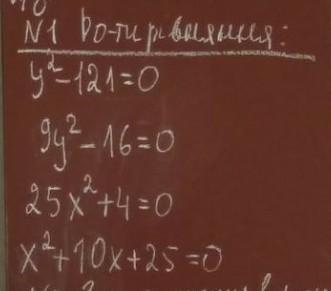 №1 Розв'яжіть рівняння:
y²-121=0
9y²-16=0
25x²+4=0
x²+10x+25=0